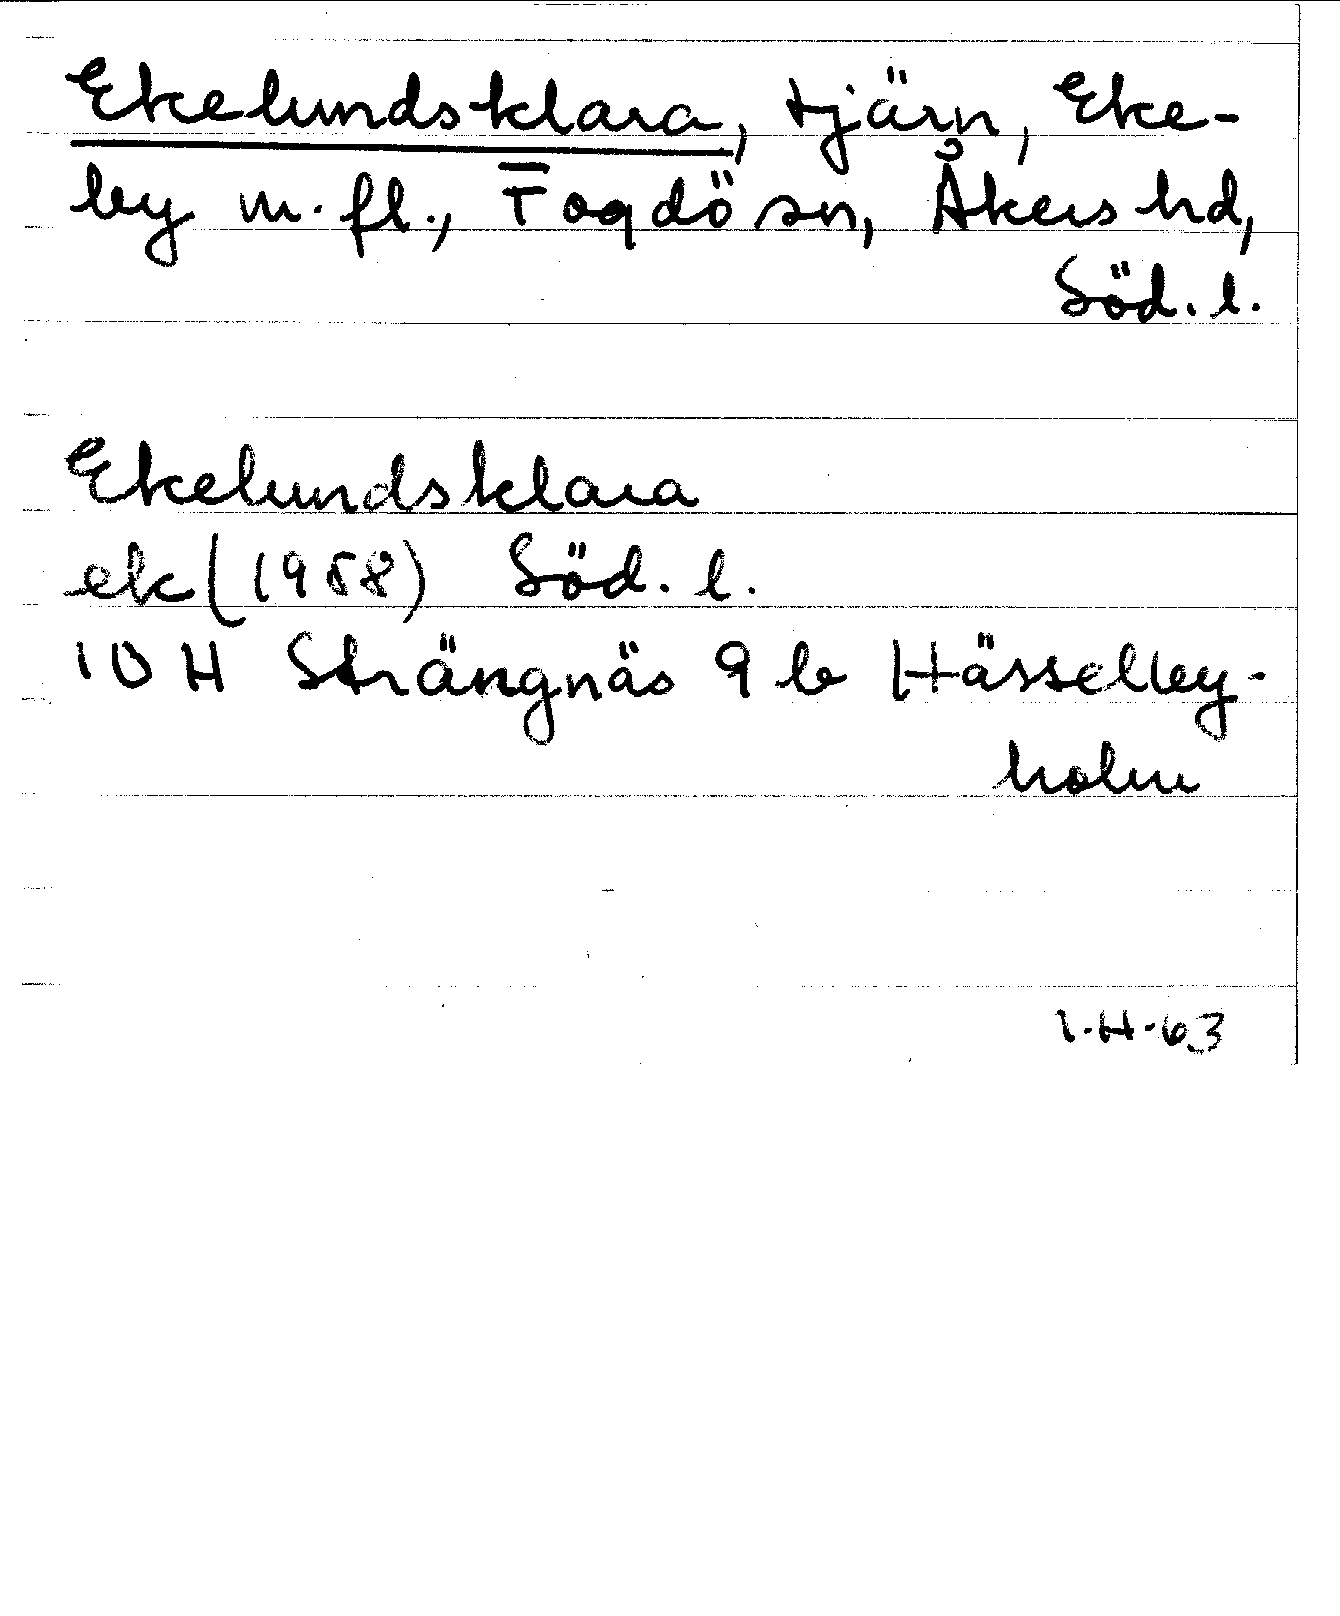 Ekelundsklara, tjärn, Eke-
by m.fl., Fogdö sn, Åkers hd,
Söd.l.
Ekelundsklara
ek (1958) Söd.l.
10 H Strängnäs 9 b Hässelby-
holm
1.H.63